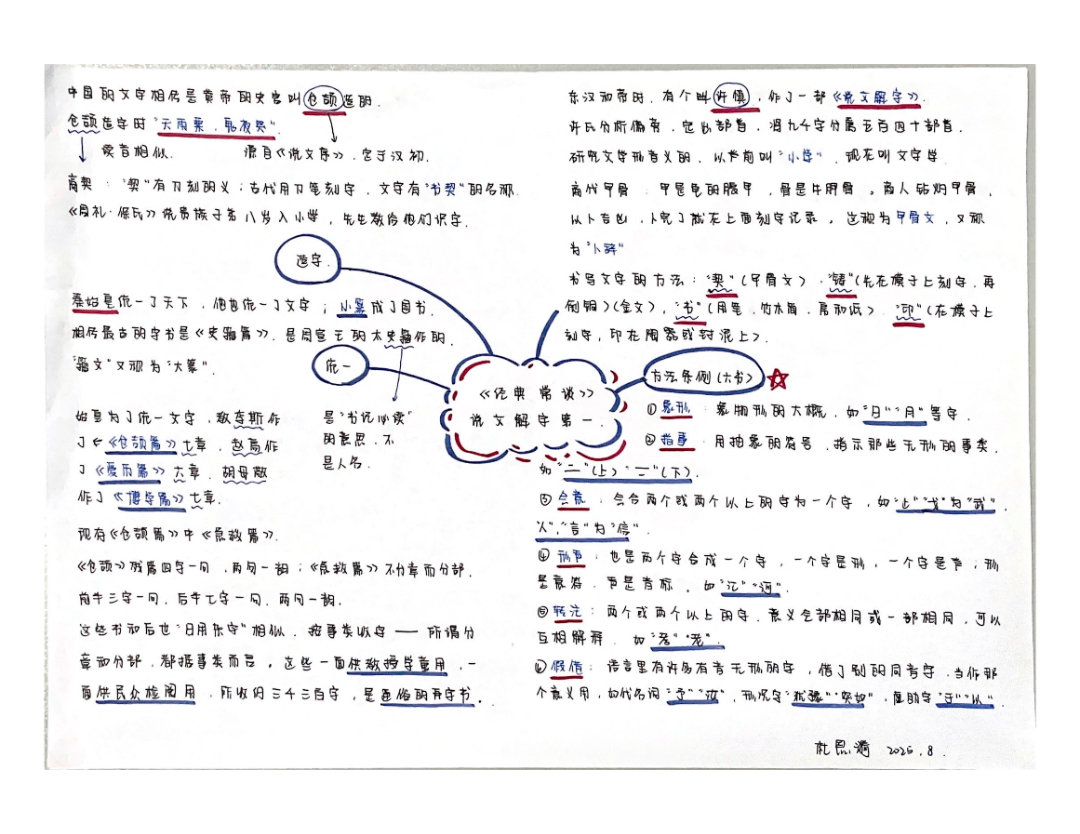 中国的文字相传是黄帝的史官叫仓颉造的.
仓颉造字时“天雨粟，鬼夜哭”.
读音相似. 源自《说文序》，定于汉初.
商契：“契”有刀刻的义；古代用刀笔刻字，文字有“书契”的名称.
《周礼·保氏》说贵族子弟八岁入小学，先生教给他们识字.
造字.
秦始皇统一了天下，他也统一了文字；小篆成了国书.
相传最古的字书是《史籀篇》，是周宣王的太史籀作的.
“籀文”又称为“大篆”.
统一
始皇为了统一文字，教李斯作
了《仓颉篇》七章，赵高作
了《爰历篇》六章，胡母敬
作了《博学篇》七章.
是“书记必读”
的意思，不
是人名.
现有《仓颉篇》中《急就篇》.
《仓颉》残篇四字一句，两句一韵；《急就篇》不分章而分部，
前半三字一句，后半七字一句，两句一韵.
这些书和后世“日用杂字”相似，按事类收字——所谓分
章和分部，都据事类而言，这些一面供教授学童用，一
面供民众检阅用，所收约三千三百字，是通俗的字书.
《经典常谈》
说文解字第一.
东汉和帝时，有个叫许慎，作了一部《说文解字》.
许氏分析偏旁，定出部首，将九千字分属五百四十部首.
研究文字形音义的，以前叫“小学”，现在叫文字学.
商代甲骨：甲是龟的腹甲，骨是牛胛骨。商人钻灼甲骨，
以卜吉凶，卜完了就在上面刻字记录。这称为甲骨文，又称
为“卜辞”
书写文字的方法：“契”（甲骨文），“铸”（先在模子上刻字，再
倒铜）（金文），“书”（用笔，竹木简，帛和纸），“印”（在模子上
刻字，印在陶器或封泥上）.
方法条例（六书）
①象形：象物形的大概，如“日”“月”等字.
②指事：用抽象的符号，指示那些无形的事类，
如“二”（上）“二”（下）.
③会意：会合两个或两个以上的字为一个字，如“止”“戈”为“武”
“人”，“言”为“信”
④形声：也是两个字合成一个字，一个字是形，一个字是声；形
是意符，声是音标。如“江”“河”.
⑤转注：两个或两个以上的字，意义全部相同或一部相同，可以
互相解释，如“考”“老”.
⑥假借：语言里有许多有音无形的字，借了别的同音字，当作那
个意义用，如代名词“予”“汝”，形况字“犹豫”“突如”，虚助字“于”“以”
2025.8.